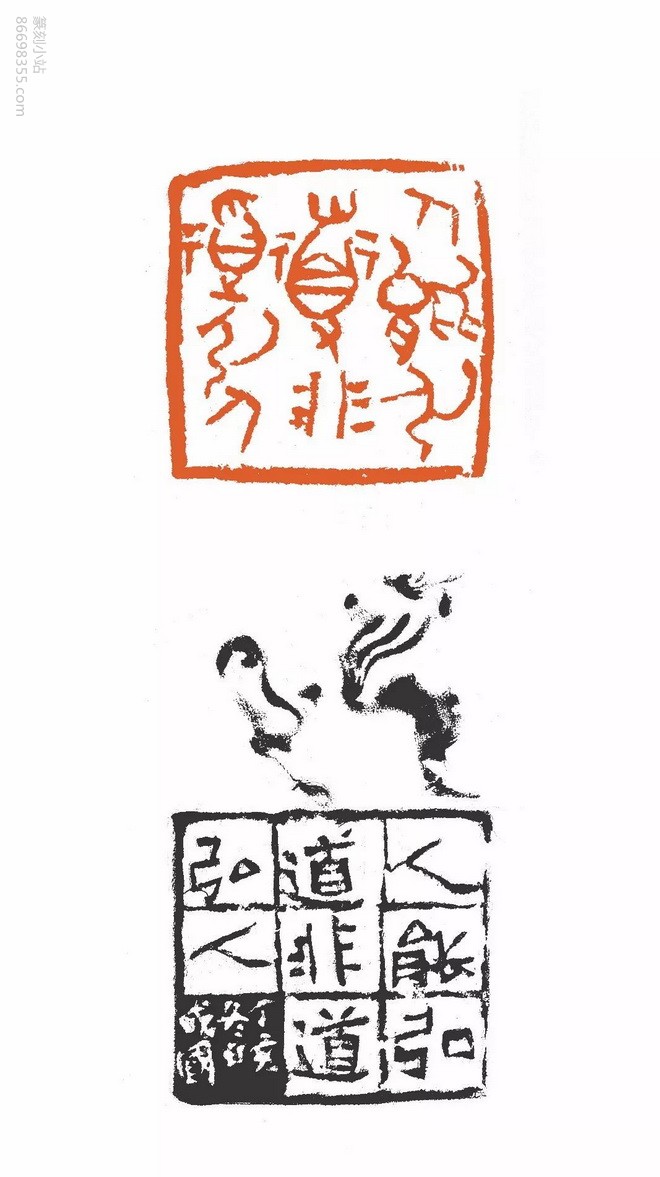 篆刻小站
86698355.com
人能弘
道非
道弘人
人能弘
道非道
弘人
丁亥
冬日
國